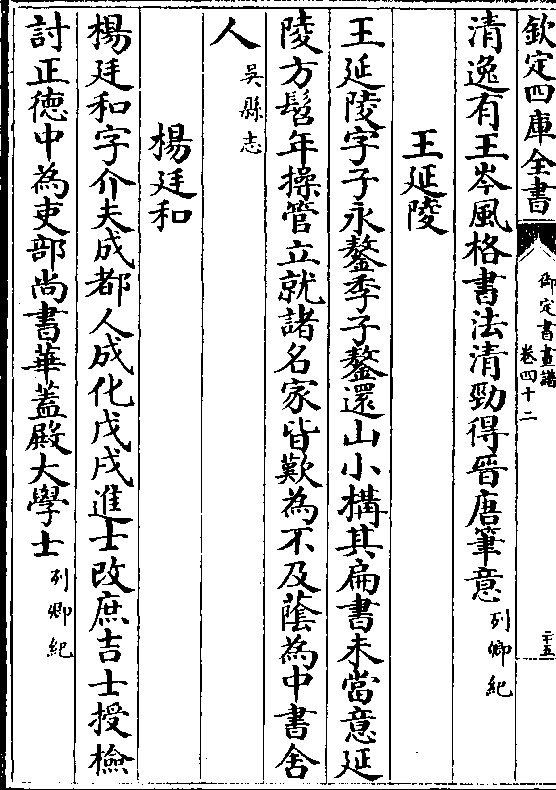 欽定四庫全書
御定書畫譜
卷四十二
二十五
清逸有王岑風格書法清勁得晉唐筆意列卿紀
王延陵
王延陵字子永鏊季子鏊還山小構其扁書未當意延
陵方髫年操管立就諸名家皆歎為不及蔭為中書舍
人吳縣志
楊廷和
楊廷和字介夫成都人成化戊戌進士改庶吉士授檢
討正德中為吏部尚書華蓋殿大學士列卿紀